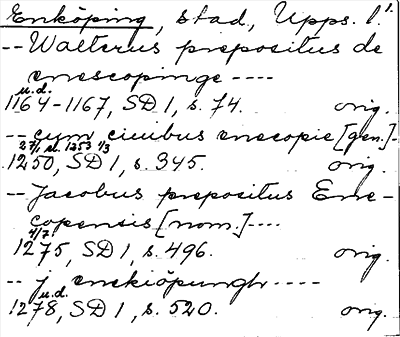 Enköping, stad, Upps. l.
-- Walterus prepositus de
enescopinge ----
u.d.
1164-1167, SD 1, s. 74. orig.
-- cum ciuibus enecopie [gen.]-
1250, SD 1, s. 345. orig.
-- Jacobus prepositus Ene-
copensis [nom.] ----
4/7
1275, SD 1, s. 496. orig.
-- j enskiöpungh ----
u.d.
1278, SD 1, s. 520. orig.